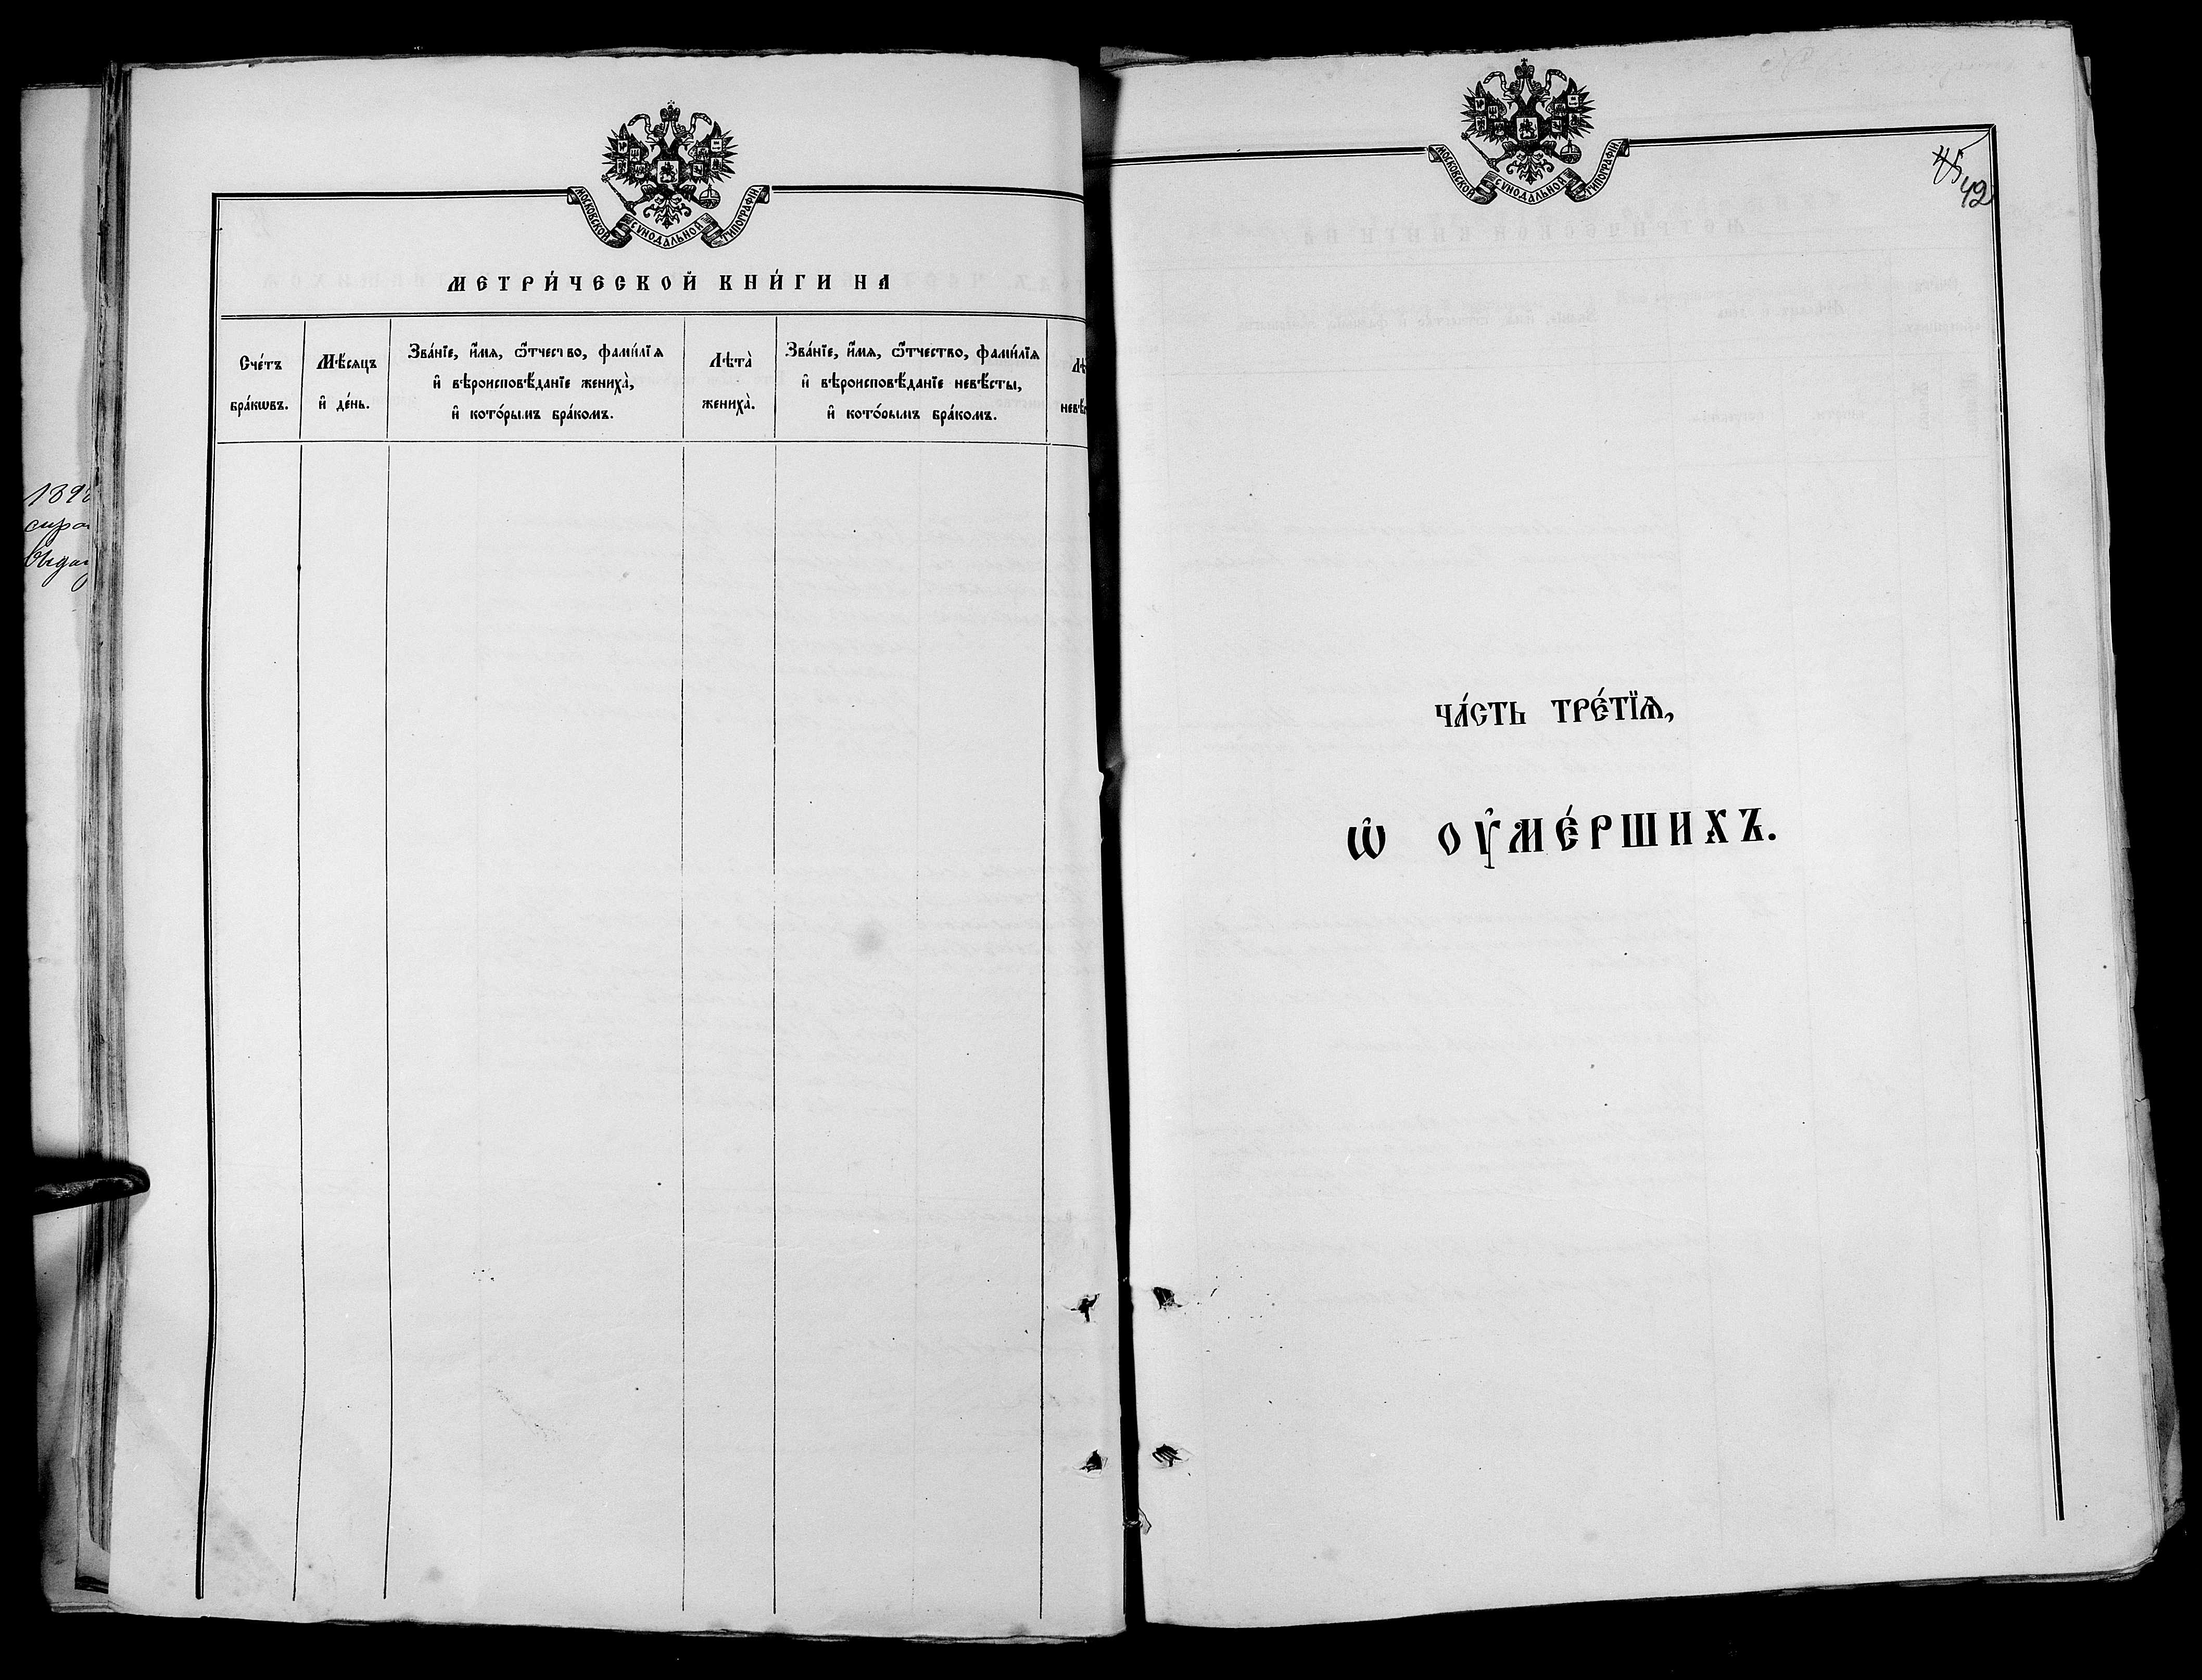 1898
МОСКОВСКОЙ СѴНОДАЛЬНОЙ ТИПОГРАФІИ
МЕТРИ́ЧЕСКОЙ КНИ́ГИ НА
Сче́тъ
бра́кѡвъ.
Мѣ́сяцъ
и҆ де́нь.
Зва́нїе, и҆́мѧ, ѿ́тчество, фами́лїѧ
и҆ вѣроисповѣ́данїе жениха̀,
и҆ кото́рымъ бра́комъ.
Лѣта̀
жениха̀.
Зва́нїе, и҆́мѧ, ѿ́тчество, фами́лїѧ
и҆ вѣроисповѣ́данїе невѣ́сты,
и҆ кото́рымъ бра́комъ.
МОСКОВСКОЙ СѴНОДАЛЬНОЙ ТИПОГРАФІИ
45
42
ЧА́СТЬ ТРЕ́ТЇѦ,
Ѡ҆ ОУ҆МЕ́РШИХЪ.